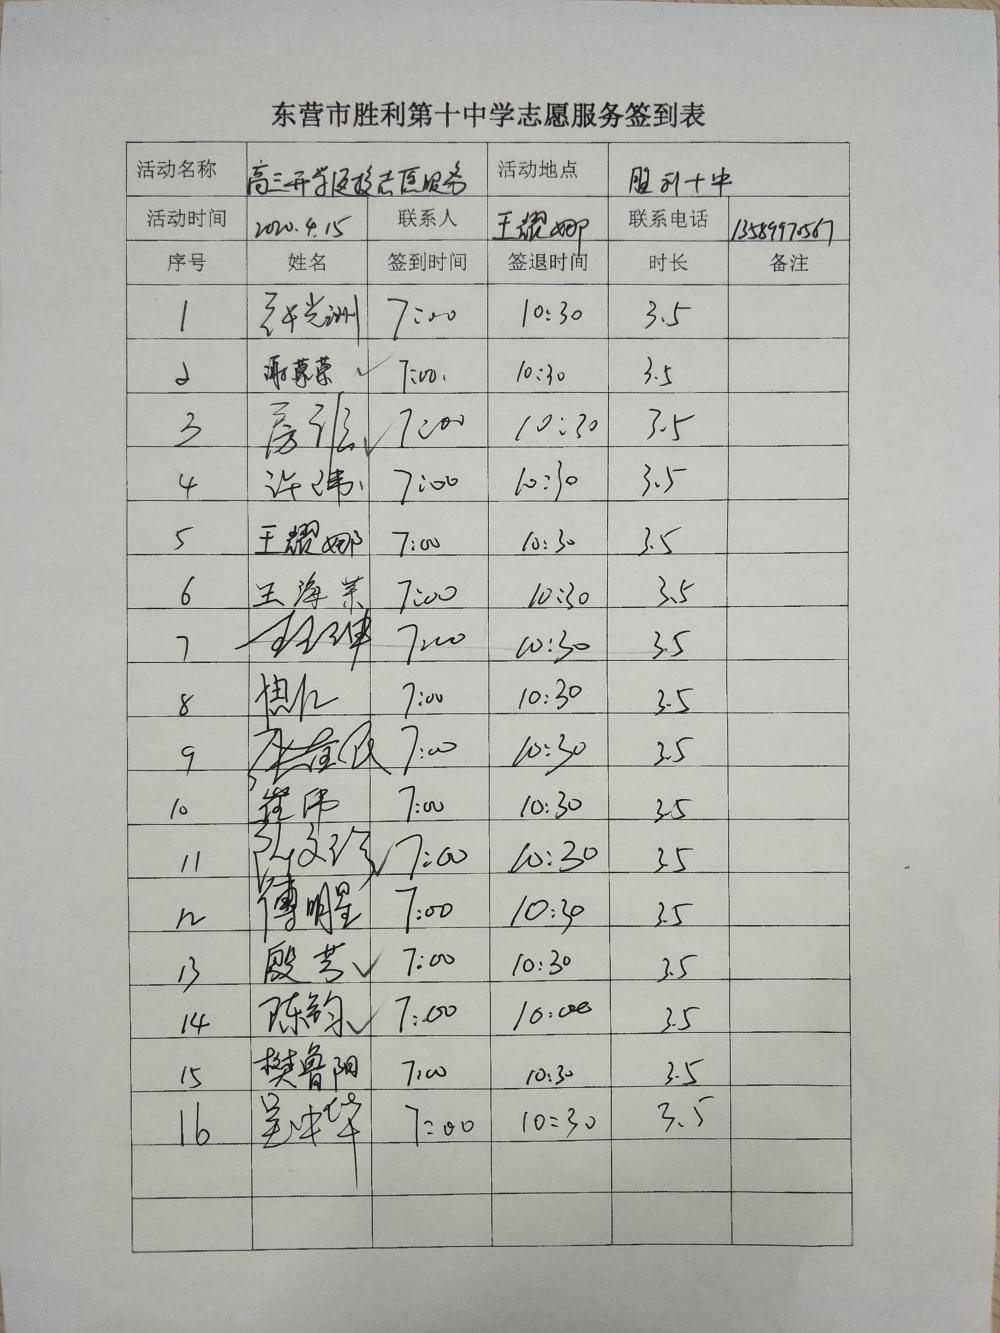 东营市胜利第十中学志愿服务签到表
活动名称 高三开学返校志愿服务 活动地点 胜利十中
活动时间 2020.4.15 联系人 王耀娜 联系电话 13589970567
序号 姓名 签到时间 签退时间 时长 备注
1 许光洲 7:00 10:30 3.5
2 谢荣荣 ✓ 7:00. 10:30 3.5
3 房 ✓ 7:00 10:30 3.5
4 许玮 7:00 10:30 3.5
5 王耀娜 7:00 10:30 3.5
6 王海荣 7:00 10:30 3.5
7 7:00 10:30 3.5
8 7:00 10:30 3.5
9 7:00 10:30 3.5
10 崔伟 7:00 10:30 3.5
11 ✓ 7:00 10:30 3.5
12 傅明星 7:00 10:30 3.5
13 殷芳 ✓ 7:00 10:30 3.5
14 陈钧 ✓ 7:00 10:00 3.5
15 樊鲁阳 7:00 10:30 3.5
16 吴中华 7:00 10:30 3.5